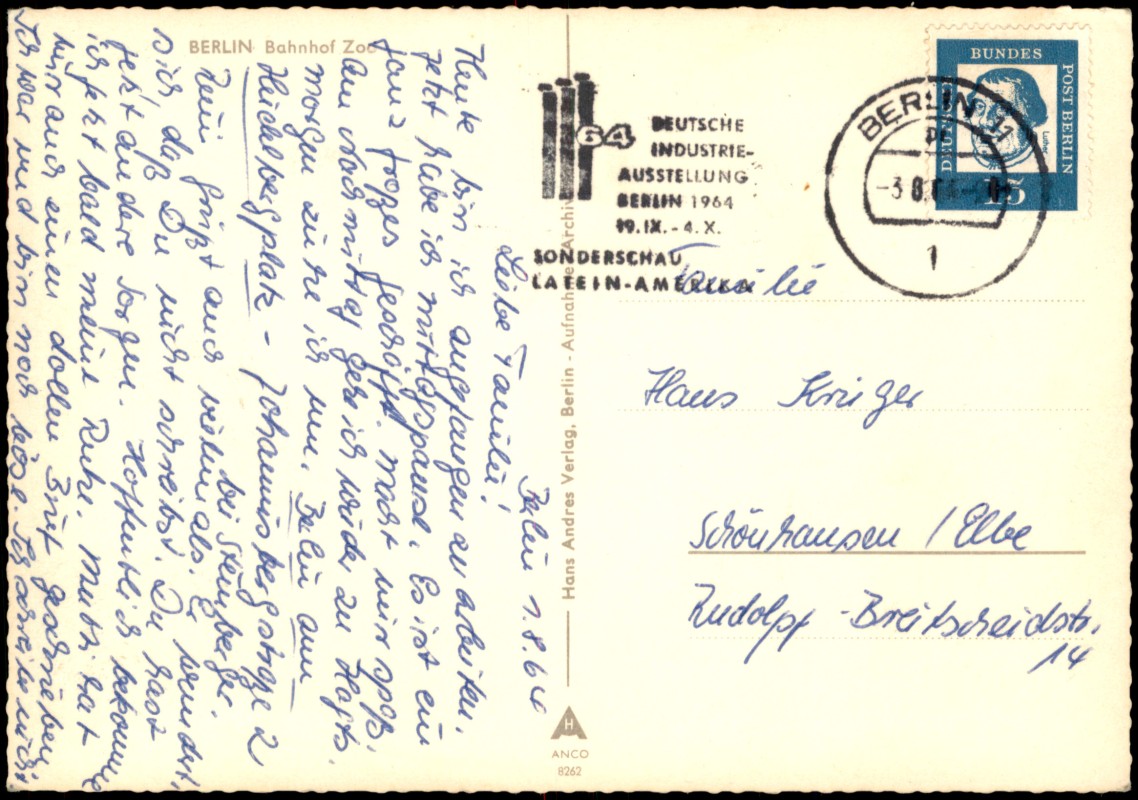 BERLIN Bahnhof Zoo
Berlin 1.8.64
Liebe Familie!
Heute bin ich angefangen zu arbeiten.
Jetzt habe ich mittagspause. Es ist ein
ganz großes Geschäft. macht mir spaß.
Am nachmittag gehe ich wieder zu
morgen ziehe ich um. Berlin
Heidelbergplatz - Johannisbergstraße 2
bei Steinberger.
Zwei grüßt auch vielmals. Er wundert
sich, daß Du nicht schreibst. Du hast
jetzt andere sorgen. Hoffentlich bekomme
ich jetzt bald meine Ruhe. Mutti hat
mir auch einen dollen Brief geschrieben
Ich war und bin noch böse. Ich schreibe nicht
Hans Andres Verlag, Berlin - Aufnahme: Archiv
ANCO
8262
64
DEUTSCHE
INDUSTRIE-
AUSSTELLUNG
BERLIN 1964
19.IX.-4.X.
SONDERSCHAU
LATEIN-AMERIKA
BERLIN 11
1
DEUTSCHE
BUNDES
POST BERLIN
Luther
15
Familie
Hans Krüger
Schönhausen / Elbe
Rudolph-Breitscheidstr.
14